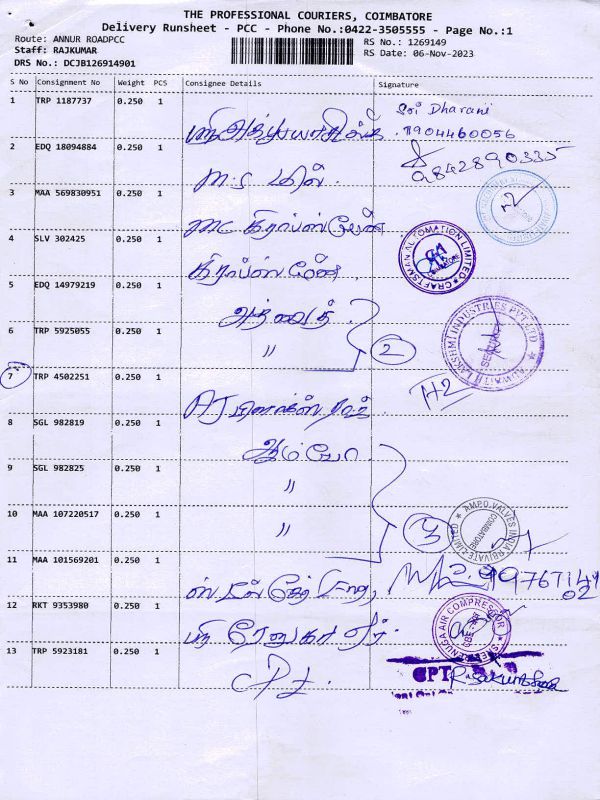 THE PROFESSIONAL COURIERS, COIMBATORE
Delivery Runsheet - PCC - Phone No.:0422-3505555 - Page No.:1
Route: ANNUR ROADPCC
RS No.: 1269149
Staff: RAJKUMAR
RS Date: 06-Nov-2023
DRS No.: DCJB126914901
S No Consignment No Weight PCS Consignee Details Signature
1 TRP 1187737 0.250 1 Sri Dharani
7904460056
2 EDQ 18094884 0.250 1 9842890335
M.S மில்
3 MAA 569830951 0.250 1
MC கிராப்ஸ்மேன்
4 SLV 302425 0.250 1 CRAFTSMAN AUTOMATION LIMITED
கிராப்ஸ்மேன்
5 EDQ 14979219 0.250 1
அத்வைத்
6 TRP 5925055 0.250 1
" 2 LAKSHMI INDUSTRIES PVT LTD
7 TRP 4502251 0.250 1
H2
8 SGL 982819 0.250 1
ஆம்போ
9 SGL 982825 0.250 1
"
10 MAA 107220517 0.250 1 AMPO VALVES INDIA PRIVATE LIMITED COIMBATORE
" 3
11 MAA 101569201 0.250 1
12 RKT 9353980 0.250 1
ஸ்ரீ ரேணுகா ஏர் SREE RENUGA AIR COMPRESSOR
13 TRP 5923181 0.250 1
CPT CPT